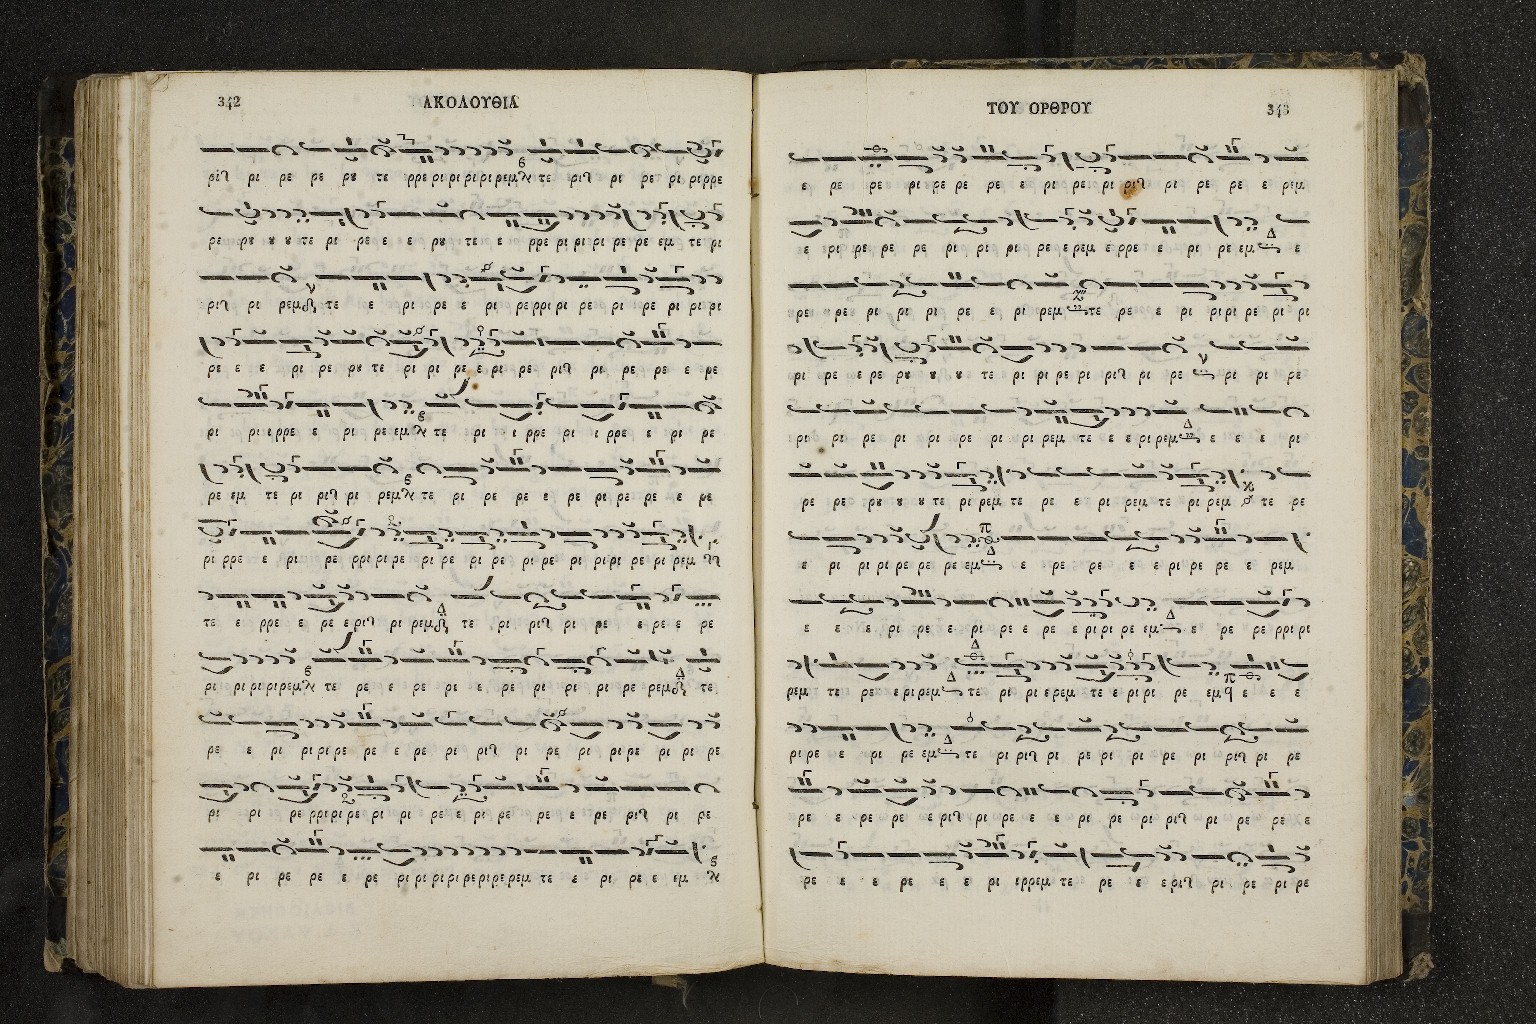 342 ΑΚΟΛΟΥΘΙΑ
ρις ρι ρε ρε ρυ τε ρρε ρι ρι ρι ρι ρεμ τε ρις ρι ρε ρι ρι ρρε
ρε ρυ υ υ τε ρι ρε ε ε ρυ τε ε ρρε ρι ρι ρι ρε ρε εμ τε ρι
ρις ρι ρεμ τε ε ρι ρε ε ρι ρε ρρι ρι ρε ρι ρε ρι ρι ρι
ρε ε ε ρι ρε ρυ τε ρι ρι ρε ε ρι ρε ρις ρι ρε ρε ε ρε
ρι ρι ι ρρε ε ρι ρε εμ τε ρι ι ρρε ρι ι ρρε ε ρι ρε
ρε εμ τε ρι ρις ρι ρεμ τε ρι ρε ρε ε ρε ρι ρε ρε ε ρε
ρι ρρε ε ρι ρε ρρι ρι ρε ρι ρε ρι ρε ρι ρε ρι ρι ρι ρε ρι ρεμ
τε ε ρρε ε ρε ε ρις ρι ρεμ τε ρι ρις ρι ρε ε ρε ε ρε
ρι ρι ρι ρι ρεμ τε ρε ε ρε ρι ε ρε ρι ρι ρι ρε ρεμ τε
ρε ε ρι ρι ρι ρε ρε ε ρε ρι ρις ρι ρε ρι ρι ρε ρι ρι ρε
ρι ρι ρε ρρι ρι ρε ρι ρι ρε ε ρι ρε ρε ε ρε ρις ρι ρε
ε ρι ρε ρε ε ρε ρι ρι ρι ρι ρε ρι ρε ρεμ τε ε ρι ρε ε εμ
ΤΟΥ ΟΡΘΡΟΥ 343
ε ρε ρε ρι ρε ρε ρε ε ρι ρε ρι ρις ρι ρε ρε ε ρεμ
ε ρι ρε ρε ρε ρι ρι ρι ρε ε ρεμ ε ρρε ε ρι ρε εμ ε
ρε ρε ρι ρι ρι ρε ε ρι ρεμ τε ρε ε ρι ρι ρι ρε ρι ρι
ρι ρε ε ρε ρυ υ υ τε ρι ρι ρε ρι ρις ρι ρε ρι ρι ρε
ρι ρι ρε ρι ρι ρε ρι ρι ρεμ τε ε ε ρι ρεμ ε ε ε ρι
ρε ρε ρυ υ υ τε ρι ρεμ τε ρε ε ρι ρεμ τε ρι ρεμ τε ρε
ε ρι ρι ρι ρε ρε ρε εμ ε ρε ρε ε ε ρι ρε ρε ε ρεμ
ε ε ε ρι ρε ε ρι ρε ε ρε ε ρι ρι ρε εμ ε ρε ρε ρρι ρι
ρεμ τε ρε ε ρι ρεμ τε ρι ρι ε ρεμ τε ε ρι ρι ρε εμ ε ε ε
ρι ρε ε ρι ρε εμ τε ρι ρις ρι ρε ρι ρι ρε ρι ρις ρι ρε
ρε ε ρε ρε ε ρις ρι ρε ε ε ρι ρε ρι ρις ρι ρε ρε ε
ρε ε ε ρε ε ε ρι ιρρεμ τε ρε ε ε ρις ρι ρε ρι ρε